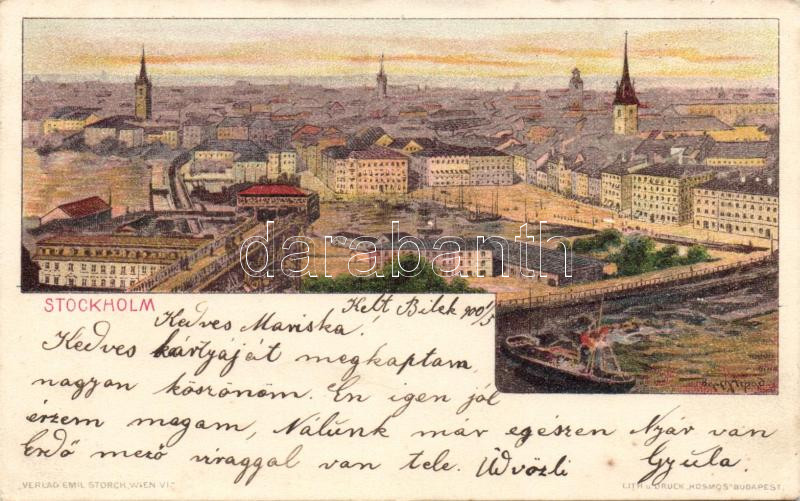 darabanth.com
STOCKHOLM
Kelt Bilek 900 1/5
Kedves Mariska!
Kedves kártyáját megkaptam,
nagyon köszönöm. En igen jól
érzem magam, Nálunk már egészen Nyár van
Erdő mező viraggal van tele. Üdvözli Gyula.
VERLAG EMIL STORCH, WIEN VI.
LITH u. DRUCK „KOSMOS" BUDAPEST.